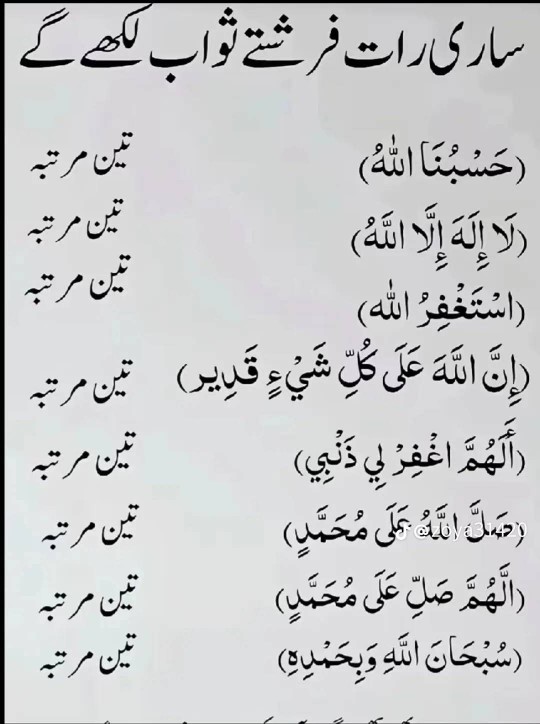 ساری رات فرشتے ثواب لکھے گے
(حَسْبُنَا اللّٰهُ) تین مرتبہ
(لَا إِلَهَ إِلَّا اللَّهُ) تین مرتبہ
(اسْتَغْفِرُ اللّٰه) تین مرتبہ
(إِنَّ اللَّهَ عَلَى كُلِّ شَيْءٍ قَدِير) تین مرتبہ
(أَلَهُمَّ اغْفِرْ لِي ذَنْبِي) تین مرتبہ
(صَلَّ اللَّهُ عَلَى مُحَمَّدٍ) تین مرتبہ
@zoya31420
(الَّهُمَّ صَلِّ عَلَى مُحَمَّدٍ) تین مرتبہ
(سُبْحَانَ اللَّهِ وَبِحَمْدِهِ) تین مرتبہ